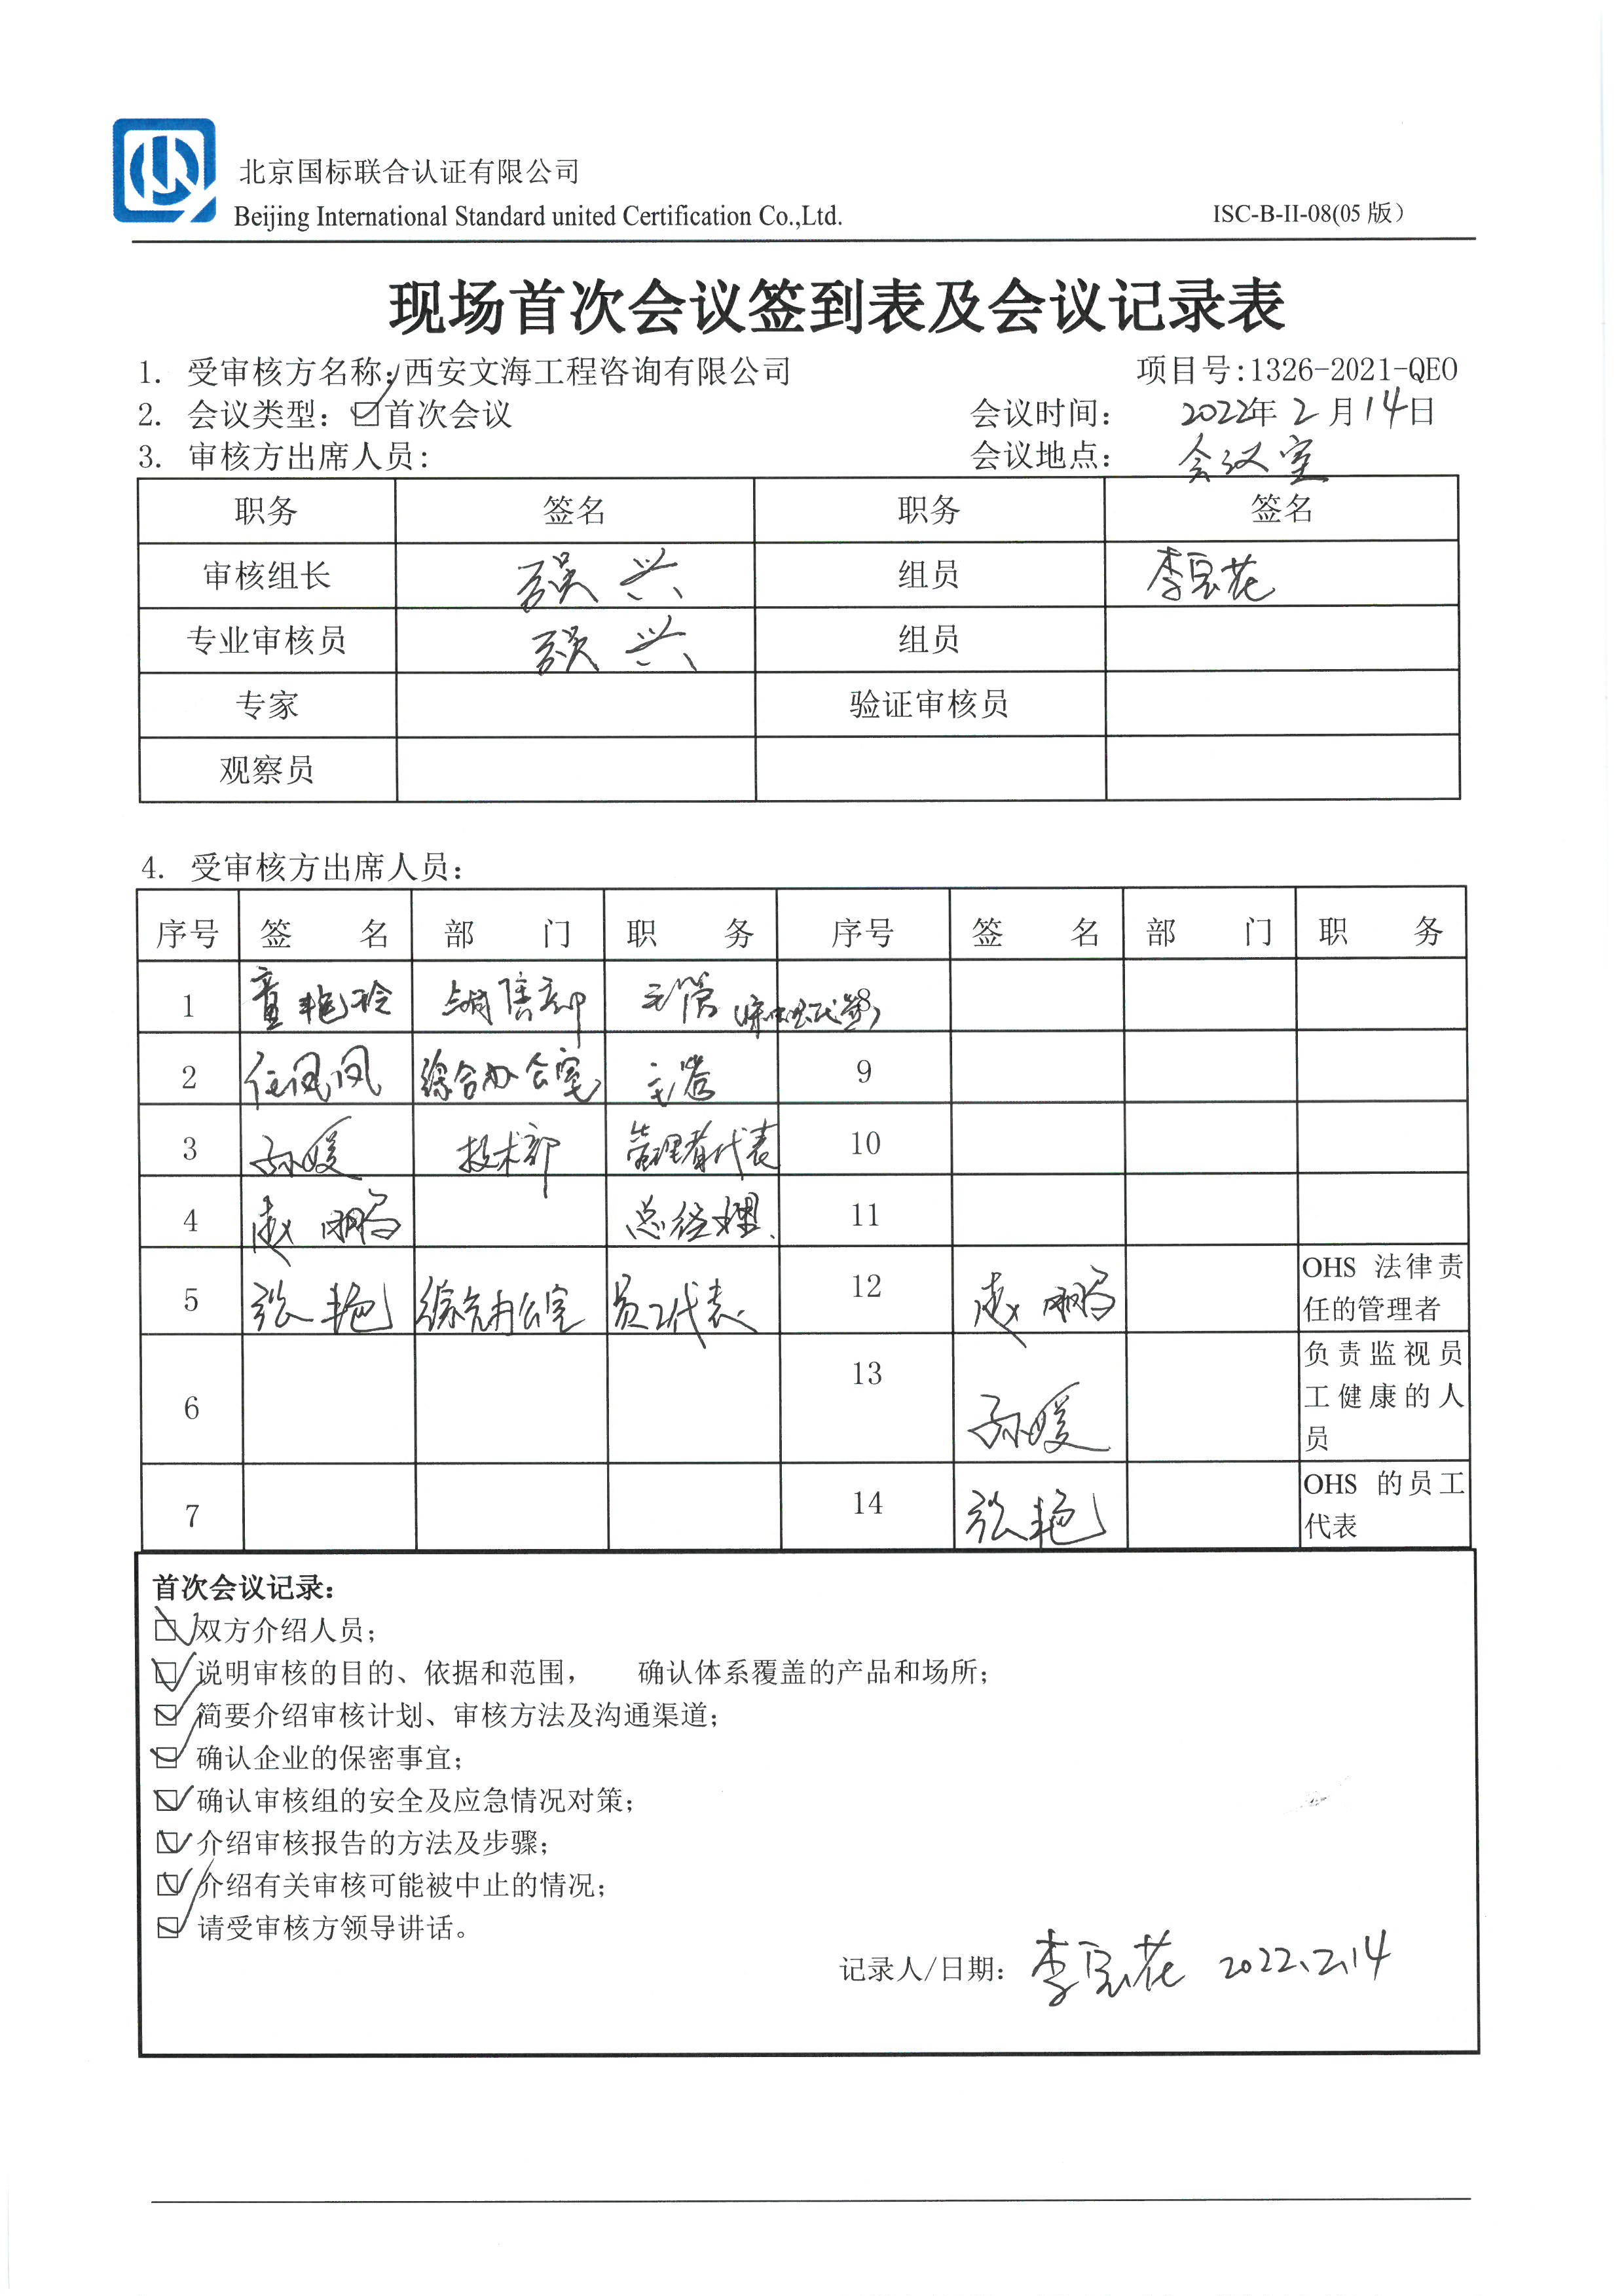 北京国标联合认证有限公司
Beijing International Standard united Certification Co.,Ltd.
ISC-B-II-08(05 版)
现场首次会议签到表及会议记录表
1. 受审核方名称:西安文海工程咨询有限公司 项目号:1326-2021-QEO
2. 会议类型: ☑首次会议 会议时间: 2022年 2 月 14 日
3. 审核方出席人员: 会议地点: 会议室
职务 签名 职务 签名
审核组长 强兴 组员
专业审核员 强兴 组员
专家 验证审核员
观察员
4. 受审核方出席人员:
序号 签 名 部 门 职 务 序号 签 名 部 门 职 务
1 童艳玲 销售部 主管 8
2 任凤凤 综合办公室 主管 9
3 孙媛 技术部 管理者代表 10
4 赵鹏 总经理 11
5 张艳 综合办公室 员工代表 12 赵鹏 OHS 法律责任的管理者
6 13 孙媛 负责监视员工健康的人员
7 14 张艳 OHS 的员工代表
首次会议记录:
☑双方介绍人员;
☑说明审核的目的、依据和范围, 确认体系覆盖的产品和场所;
☑简要介绍审核计划、审核方法及沟通渠道;
☑确认企业的保密事宜;
☑确认审核组的安全及应急情况对策;
☑介绍审核报告的方法及步骤;
☑介绍有关审核可能被中止的情况;
☑请受审核方领导讲话。
记录人/日期: 2022.2.14